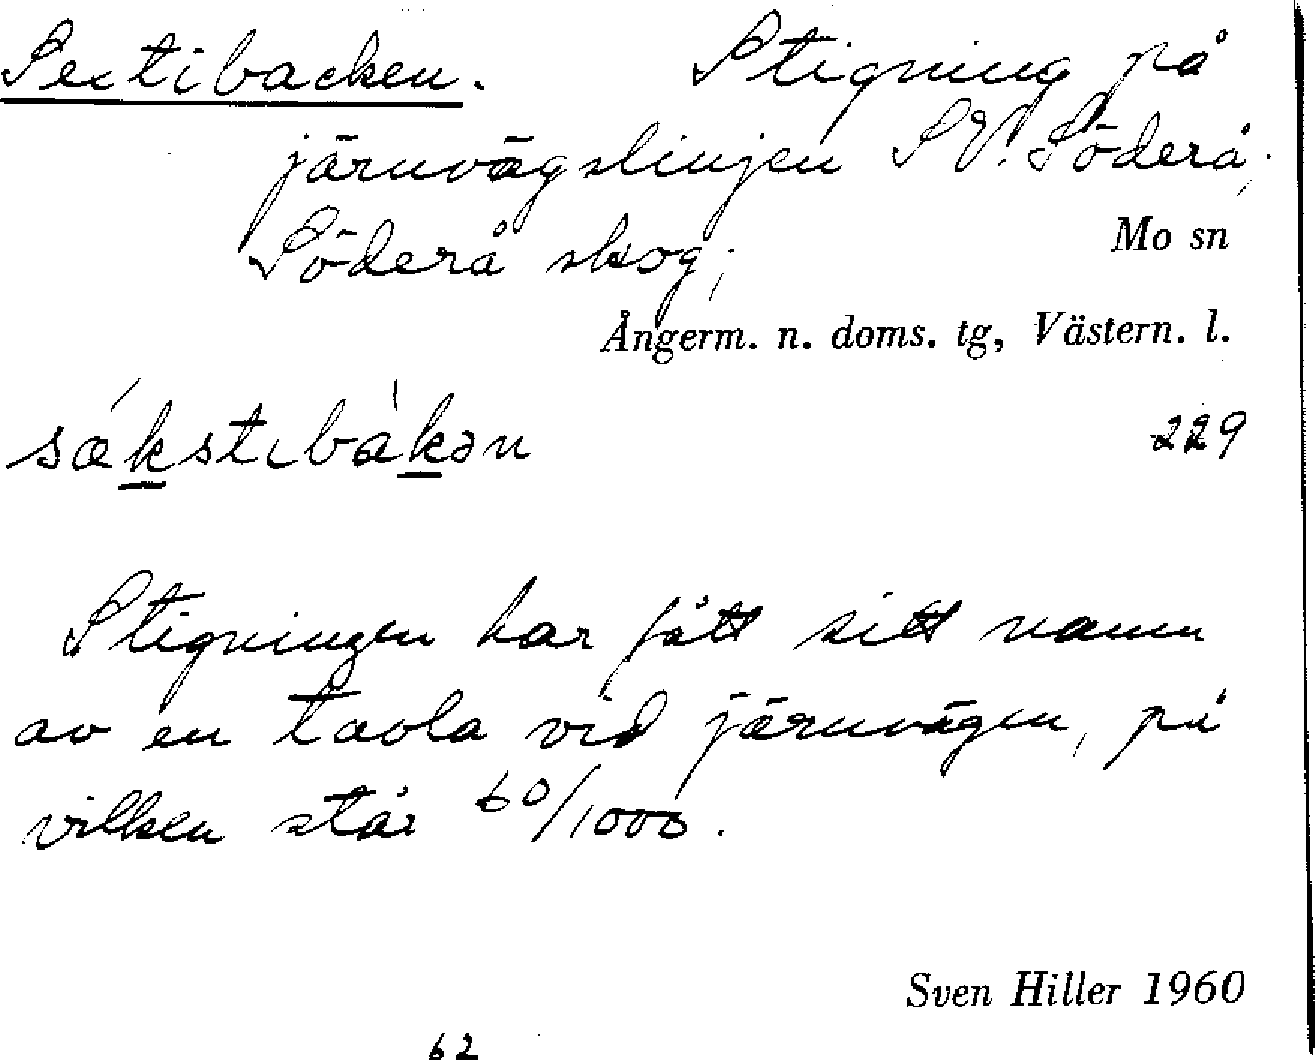 Sextibacken. Stigning på
järnvägslinjen SV. Söderå,
Söderå skog, Mo sn
Ångerm. n. doms. tg, Västern. l.
sækstɩbàkən 229
Stigningen har fått sitt namn
av en tavla vid järnvägen, på
vilken står 60/1000.
Sven Hiller 1960
62